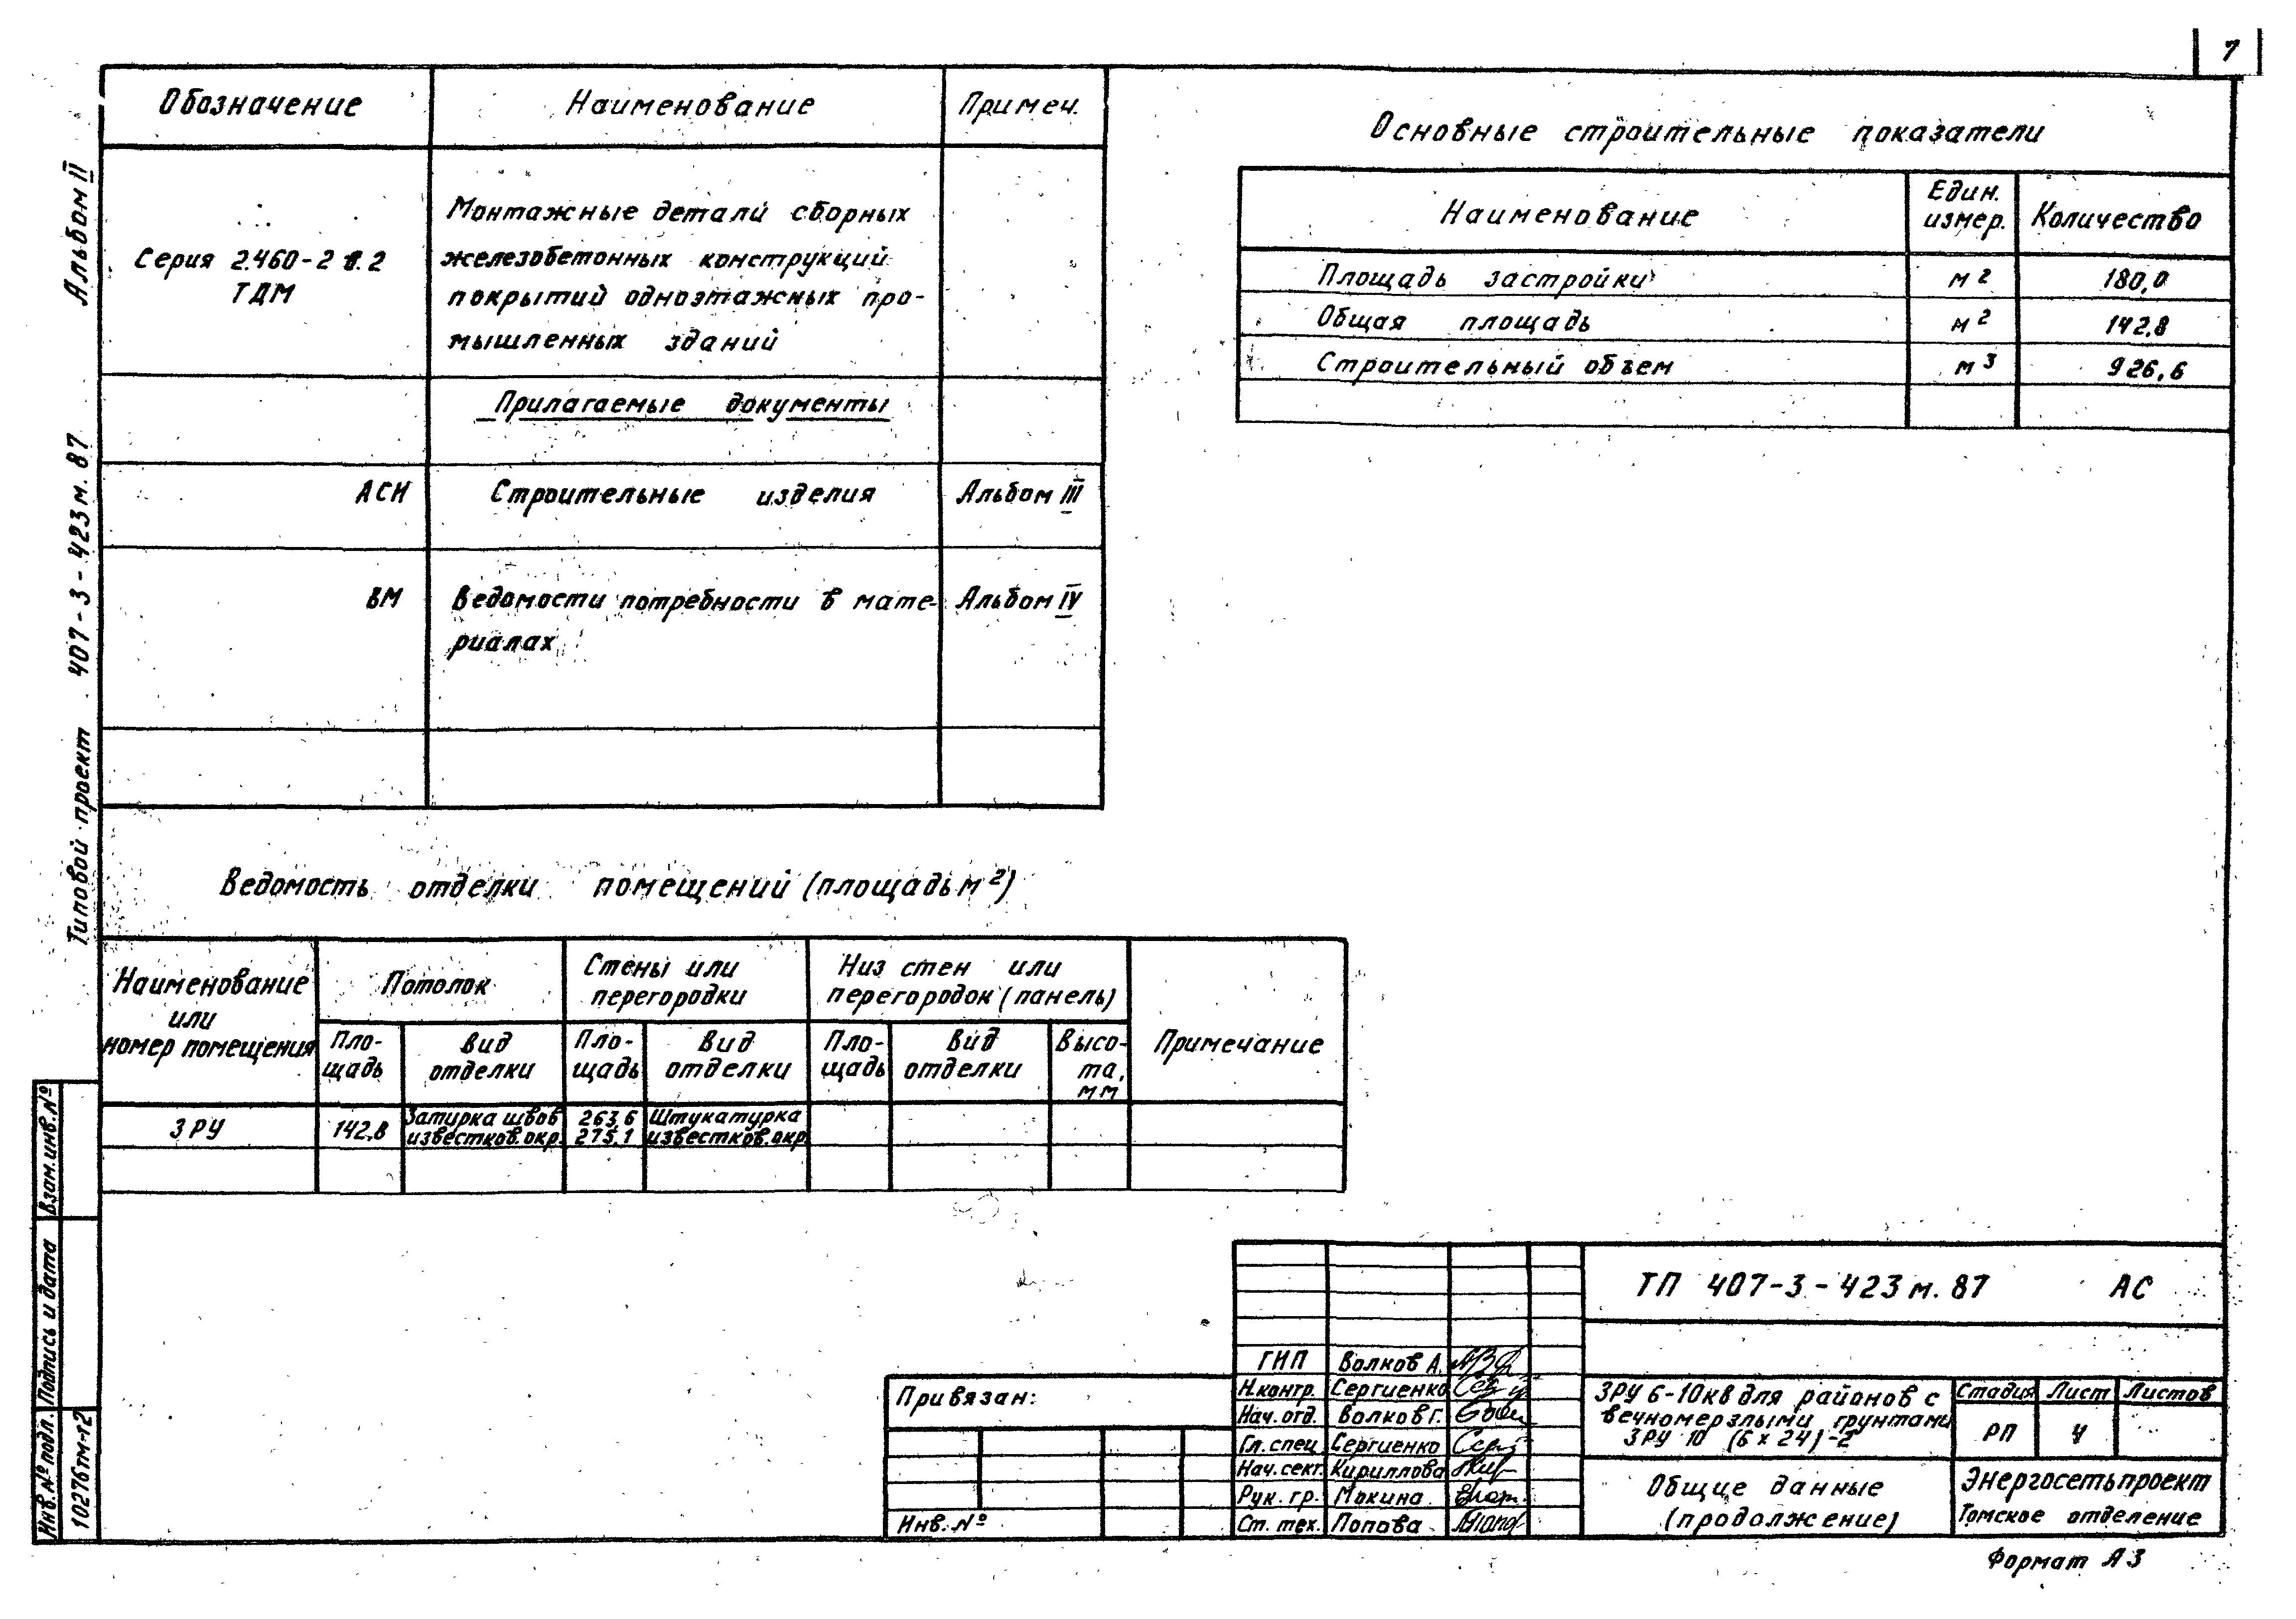 7
Альбом II
Типовой проект 407-3-423м.87
Обозначение Наименование Примеч.
Серия 2.460-2 в.2
ТДМ
Монтажные детали сборных
железобетонных конструкций
покрытий одноэтажных про-
мышленных зданий
Прилагаемые документы
АСИ Строительные изделия Альбом III
ВМ Ведомости потребности в мате- Альбом IV
риалах
Основные строительные показатели
Наименование Един. измер. Количество
Площадь застройки м2 180,0
Общая площадь м2 142.8
Строительный объем м3 926,6
Ведомость отделки помещений (площадь м2)
Наименование
или
номер помещения
Потолок
Стены или
перегородки
Низ стен или
перегородок (панель)
Примечание
Пло-
щадь
Вид
отделки
Пло-
щадь
Вид
отделки
Пло-
щадь
Вид
отделки
Высо-
та,
мм
ЗРУ 142,8
Затирка швов
известков.окр.
263,6
275,1
Штукатурка
известков.окр.
Взам.инв.№
Подпись и дата
Инв.№ подл.
10276тм-т2
Привязан:
Инв. №
ГИП Волков А.
Н.контр. Сергиенко
Нач. отд. Волков Г.
Гл. спец Сергиенко
Нач.сект. Кириллова
Рук. гр. Мокина
Ст. тех. Попова
ТП 407-3-423м.87 АС
ЗРУ 6-10кВ для районов с
вечномерзлыми грунтами
ЗРУ 10 (6х24)-2
Стадия Лист Листов
РП 4
Общие данные
(продолжение)
Энергосетьпроект
Томское отделение
Формат А3